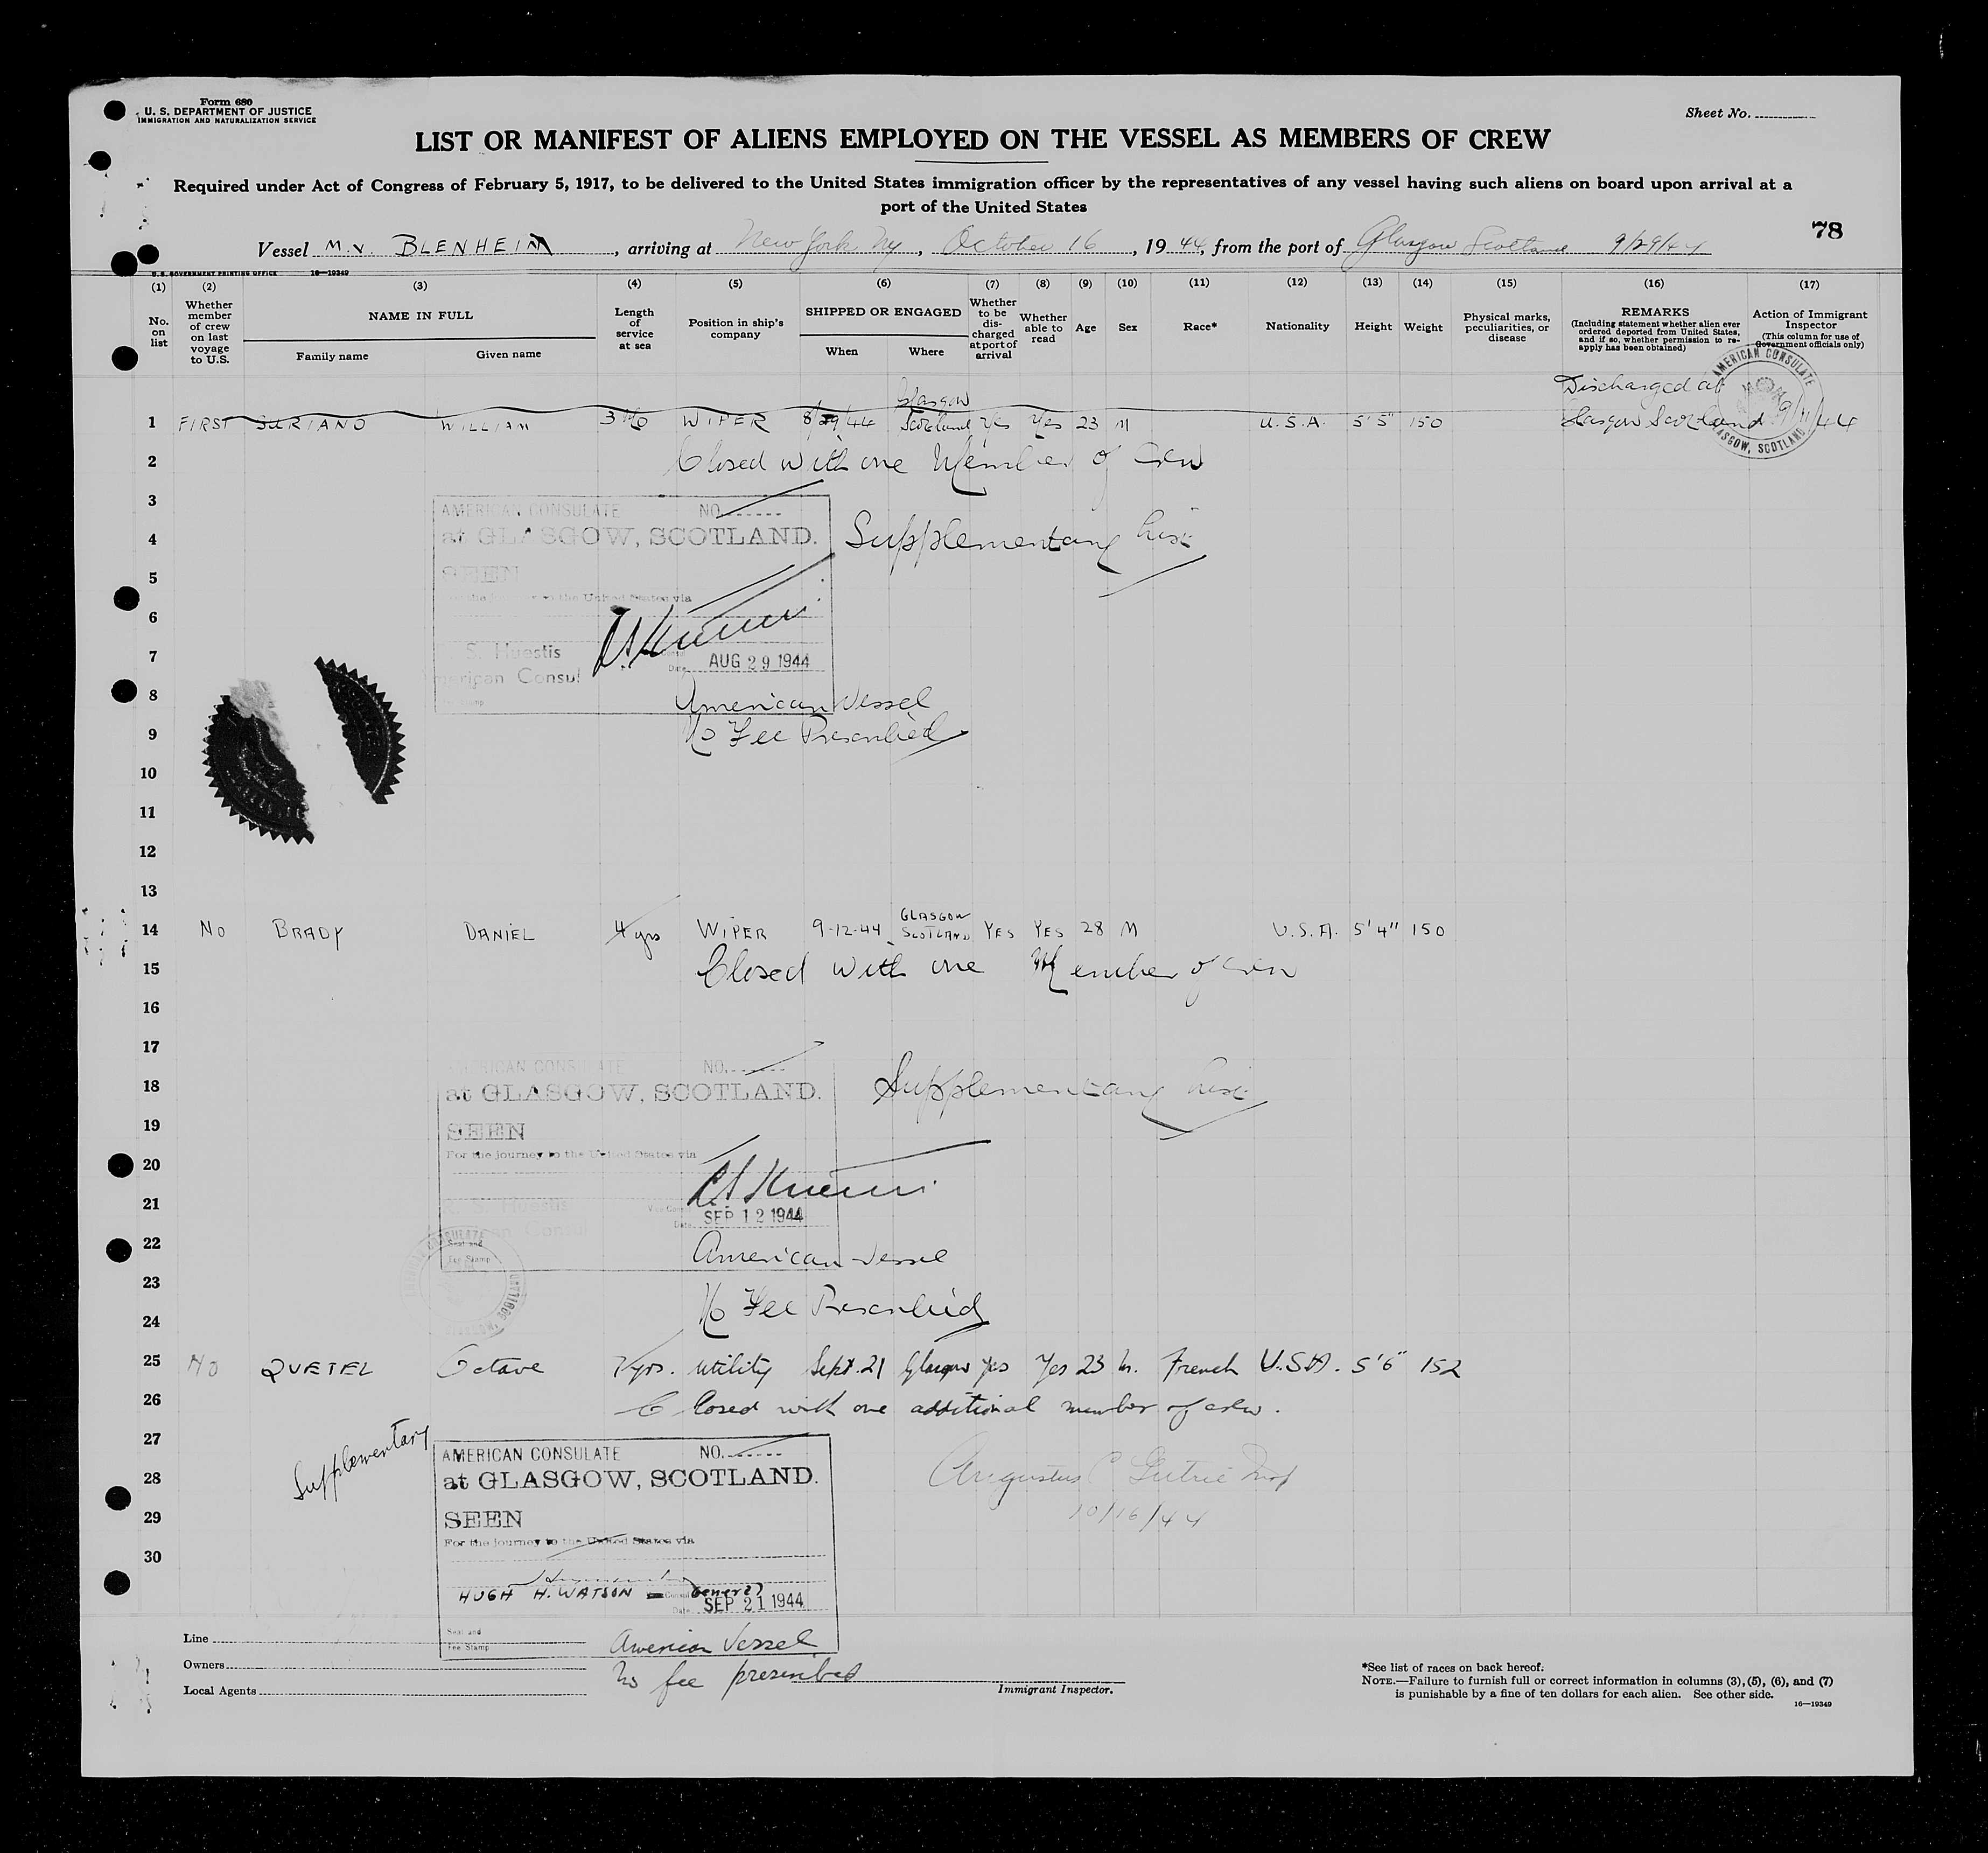 Form 680
U. S. DEPARTMENT OF JUSTICE
IMMIGRATION AND NATURALIZATION SERVICE
Sheet No.
LIST OR MANIFEST OF ALIENS EMPLOYED ON THE VESSEL AS MEMBERS OF CREW
Required under Act of Congress of February 5, 1917, to be delivered to the United States immigration officer by the representatives of any vessel having such aliens on board upon arrival at a
port of the United States
78
Vessel M.V. BLENHEIM, arriving at New York Ny, October 16, 1944, from the port of Glasgow Scotland 9/29/44
U.S. GOVERNMENT PRINTING OFFICE 16—19349
(1) (2) (3) (4) (5) (6) (7) (8) (9) (10) (11) (12) (13) (14) (15) (16) (17)
No. on list
Whether member of crew on last voyage to U.S.
NAME IN FULL
Family name Given name
Length of service at sea
Position in ship's company
SHIPPED OR ENGAGED
When Where
Whether to be discharged at port of arrival
Whether able to read
Age
Sex
Race*
Nationality
Height
Weight
Physical marks, peculiarities, or disease
REMARKS
(Including statement whether alien ever ordered deported from United States, and if so, whether permission to re-apply has been obtained)
Action of Immigrant Inspector
(This column for use of Government officials only)
AMERICAN CONSULATE
GLASGOW, SCOTLAND
Discharged at
Glasgow Scotland 9/11/44
1 FIRST SURIANO WILLIAM 3 Mo WIPER 8/29/44 Glasgow Scotland Yes Yes 23 M U.S.A. 5'5" 150
2 Closed with one Member of Crew
3 AMERICAN CONSULATE NO.
4 at GLASGOW, SCOTLAND. Supplementary List
5 SEEN
For the journey to the United States via
6
7 S. Huestis AUG 29 1944
American Consul
8 American Vessel
9 No Fee Prescribed
10
11
12
13
14 No BRADY DANIEL 4 yrs WIPER 9-12-44 GLASGOW SCOTLAND YES YES 28 M U.S.A. 5'4" 150
15 Closed with one Member of crew
16
17 AMERICAN CONSULATE NO.
18 at GLASGOW, SCOTLAND. Supplementary List
19 SEEN
20 For the journey to the United States via
21 R. S. Huestis Vice Consul Date SEP 12 1944
American Consul
22 Seal and Fee Stamp American Vessel
23
24 No Fee Prescribed
25 No QUETEL Octave 7 yrs. Utility Sept. 21 Glasgow Yes Yes 23 M. French U.S.A. 5'6" 152
26 Closed with one additional member of crew.
27 Supplementary AMERICAN CONSULATE NO.
28 at GLASGOW, SCOTLAND. Augustus C
29 SEEN 10/16/44
For the journey to the United States via
30
HUGH H. WATSON General
Date SEP 21 1944
Seal and Fee Stamp
American Vessel
No fee prescribed
Line
Owners
Local Agents
Immigrant Inspector.
*See list of races on back hereof.
NOTE.—Failure to furnish full or correct information in columns (3), (5), (6), and (7)
is punishable by a fine of ten dollars for each alien. See other side.
16—19349